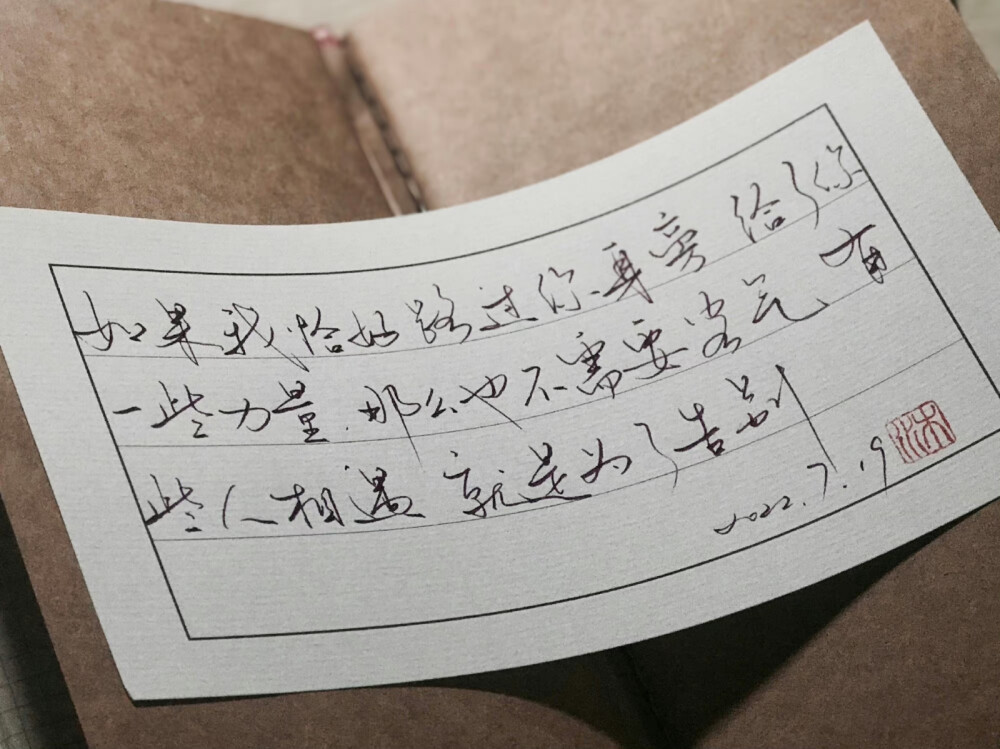 如果我恰好路过你身旁 给了你
一些力量.那么也不需要客气、有
些人相遇 就是为了告别
2022.7.19